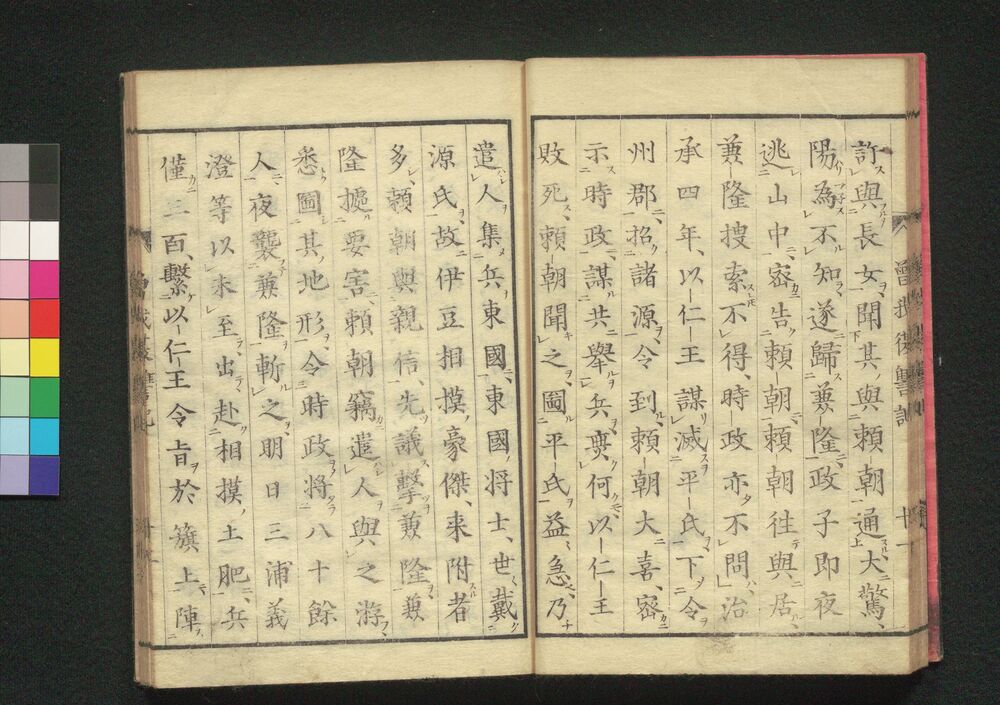 曾我復讐記 十一
許與長女聞其與頼朝通大驚、
陽為不知遂歸兼隆政子即夜
逃山中密告頼朝頼朝往與居
兼隆搜索不得時政亦不問治
承四年以仁王謀滅平氏下令
州郡招諸源令到頼朝大喜密
示時政謀共舉兵無何以仁王
敗死頼朝聞之圖平氏益急乃
遣人集兵東國東國將士世戴
源氏故伊豆相摸豪傑來附者
多頼朝與親信先議擊兼隆兼
隆據要害頼朝竊遣人與之游
悉圖其地形令時政將八十餘
人夜襲兼隆斬之明日三浦義
澄等以未至出赴相摸土肥兵
僅三百繫以仁王令旨於籏上陣